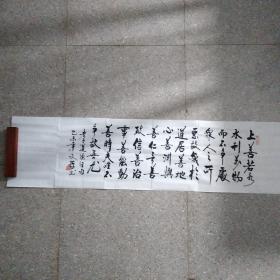 上善若水
水利万物
而不争處
众人之所
惡故幾於
道居善地
心善渊與
善仁言善
政信善治
事善能動
善時夫唯不
争故無尤